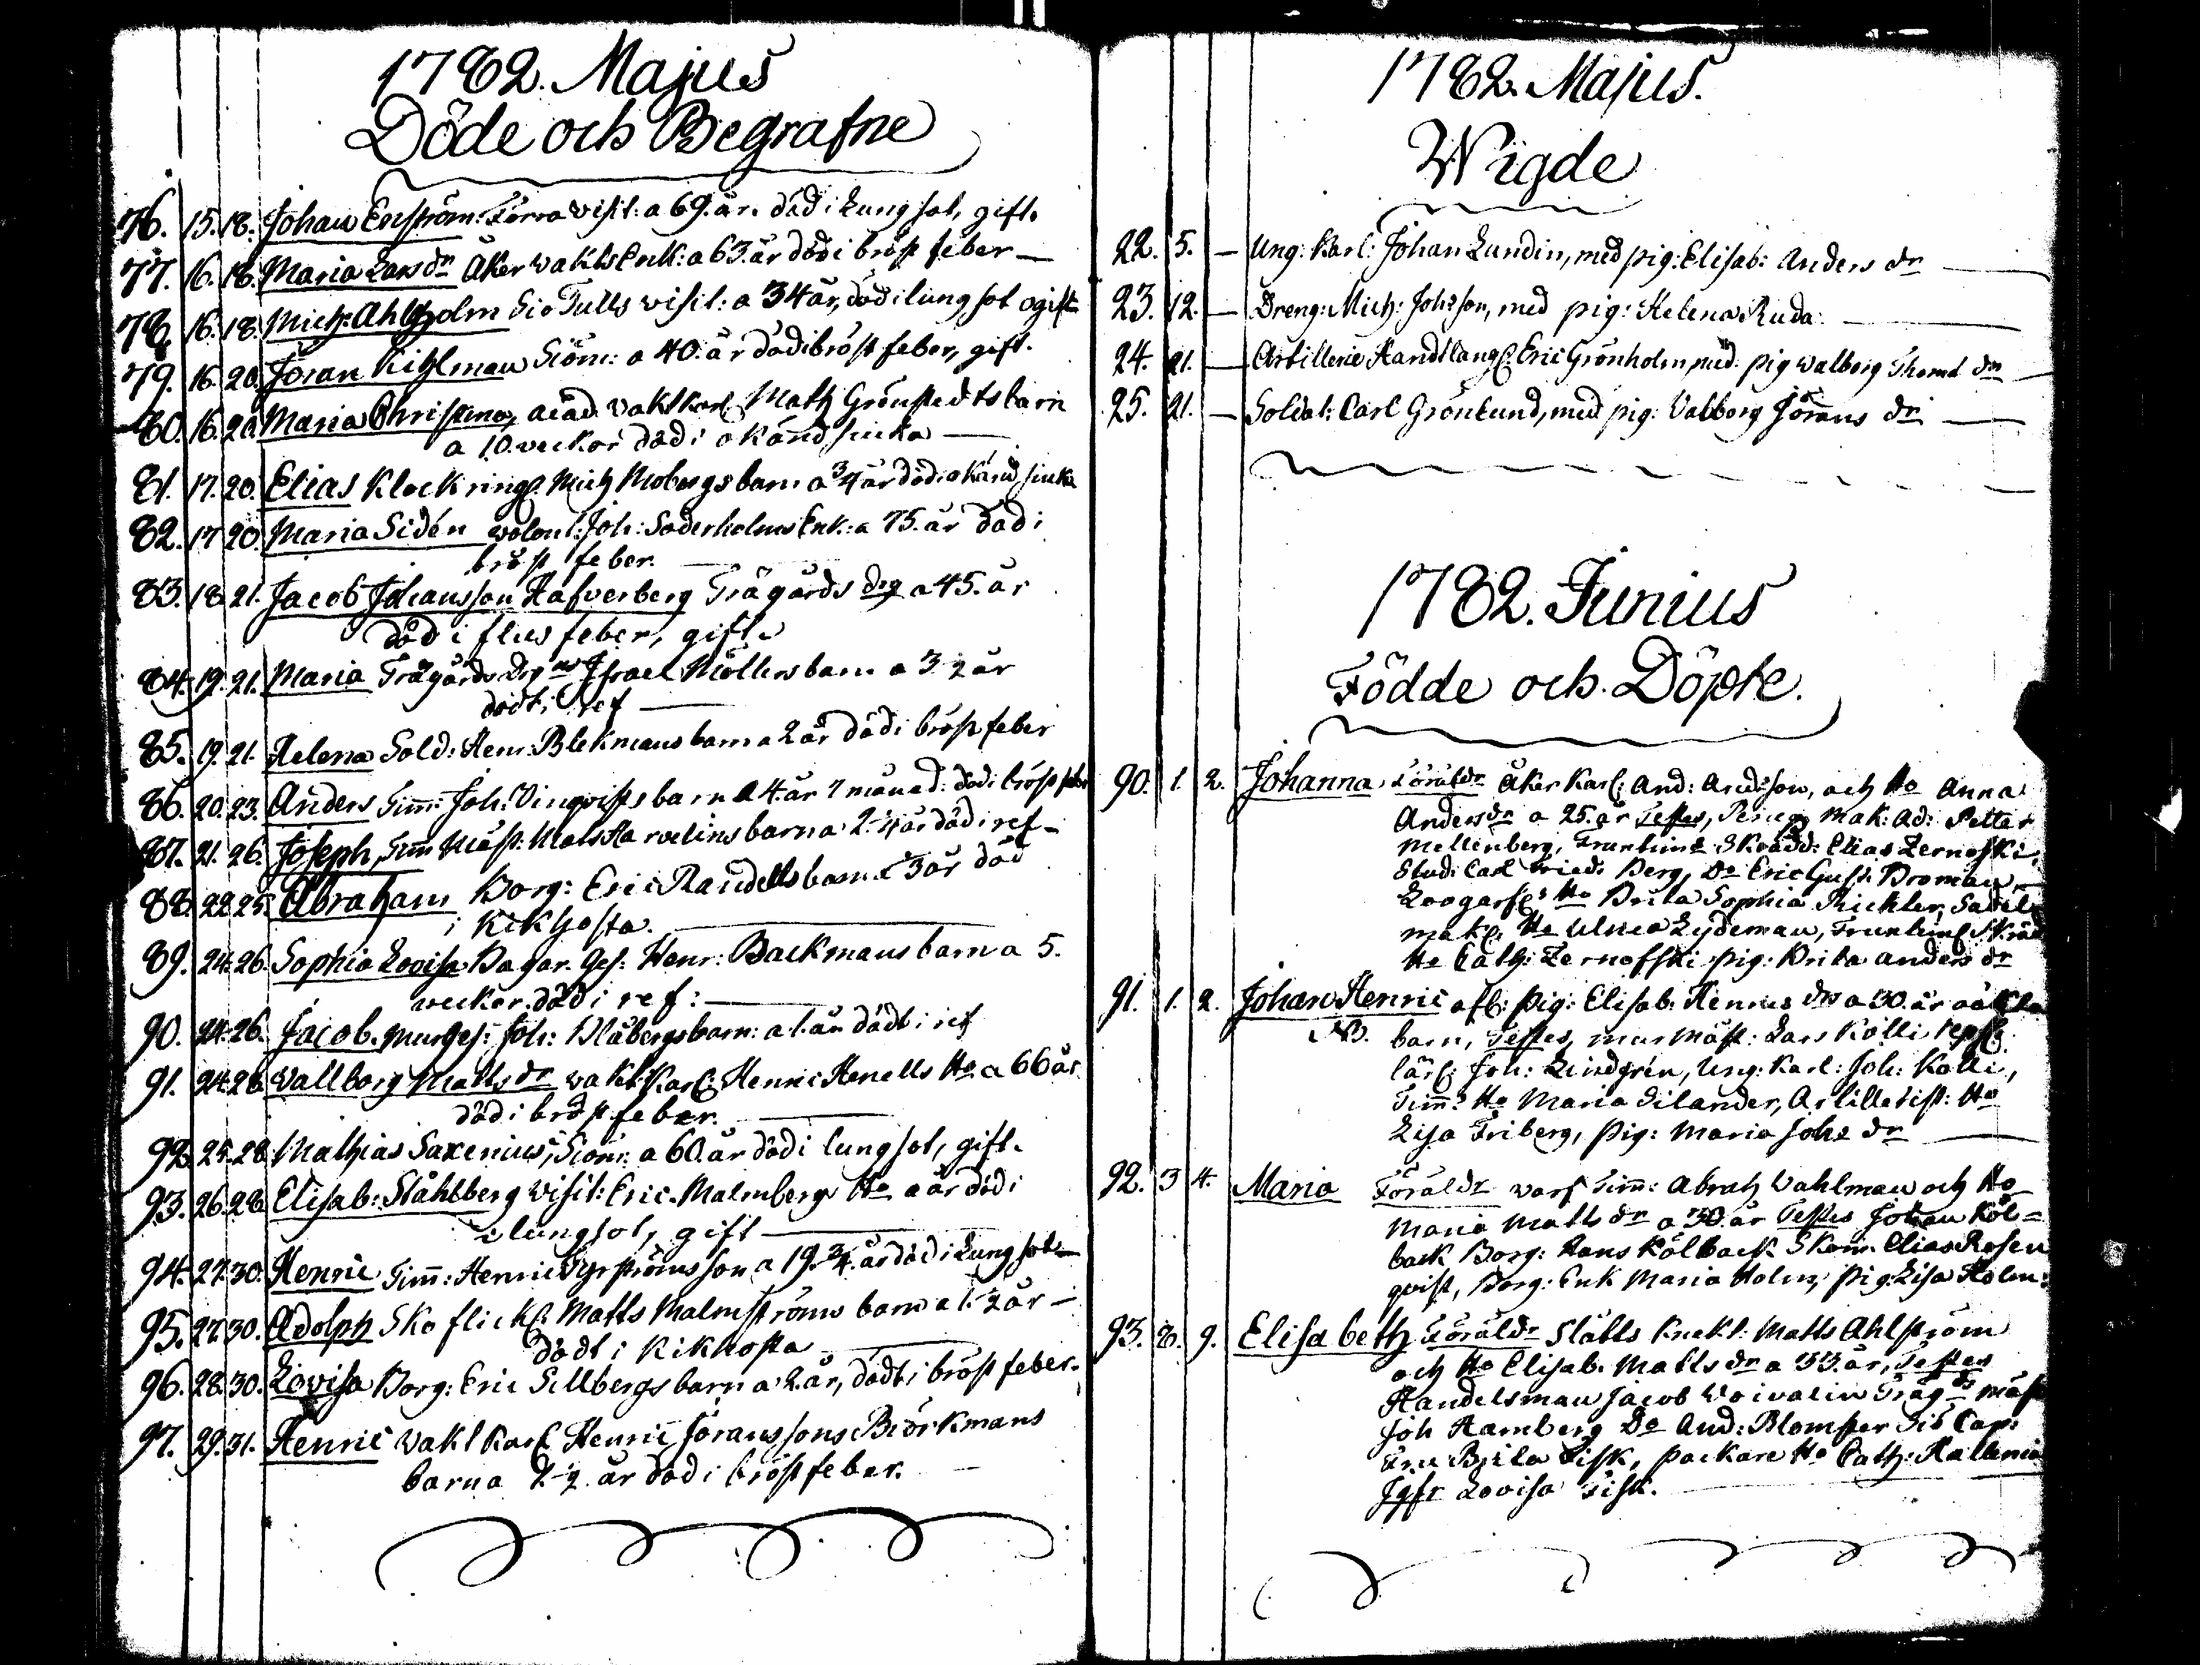 1782. Majus
Döde och Begrafne
76. 15. 18. Johan Enström: Förra visit: a 69. år. död i Lungsot, gift.
77. 16. 18. Maria Lars dr Åker vakts Enk: a 63. år död i bröst feber —
78. 16. 18. Mich: Ahlholm Siö Tulls visit: a 34 år, död i lungsot ogift
79. 16. 20. Jöran Kihlman Siöm: a 40. år död i bröst feber, gift.
80. 16. 20. Maria Christina, acad. vaktkarl Math Grönstedts barn
a 10. veckor död i okänd siuka —
81. 17. 20. Elias Klockring. Mich Mobergs barn a 3/4 år död. okänd siuka
82. 17 20. Maria Sidén volont: Joh: Söderholms Enk: a 75. år död i
bröst feber. —
83. 18. 21. Jacob Johansson Hafverberg Trägårds drg a 45. år
död i flus feber, gift.
84. 19. 21. Maria Trägårds Drgns Israel Möllers barn a 3 1/2 år
dödt i ref —
85. 19. 21. Helena Sold: Henr: Blekmans barn a 2 år död i bröst feber
86. 20. 23. Anders Timr: Joh: Vinqvists barn a 4. år 7 månad: död i bröst feber
87. 21. 26. Joseph, Tim Mäst: Mats Harvelins barn a 2 1/4 år död i ref —
88. 22. 25. Abraham Borg: Eric Randells barn a 3 år död
i kikhosta. —
89. 24. 26. Sophia Lovisa Bagar. Ges: Henr: Backmans barn a 5.
veckor. död i ref: —
90. 24. 26. Jacob. Murges: Joh: Blåbergs barn: a 1. år dödt i ref
91. 24. 28. Wallborg Matts dr vakt: Karl: Henric Henells Ho a 66 år
död i bröst feber. —
92. 25. 28. Mathias Saxenius, Siöm: a 60. år död i lungsot, gift.
93. 26. 28. Elisab: Ståhlberg visit: Eric. Malmbergs Ho a år död i
i lungsot, gift —
94. 27. 30. Henric Timr: Henric Fyrströms son a 19. 3/4. år död i Lungsot —
95. 27. 30. Adolph Skoflick: Matts Malmströms barn a 1. 1/2 år —
dödt i Kikhosta —
96. 28. 30. Lovisa Borg: Eric Sellbergs barn a 2. år, dödt i bröst feber.
97. 29. 31. Henric Vakt Karl Henric Joranssons Biörkmans
barn a 2 1/2 år död i bröst feber. —
1782. Majus.
Wigde
22. 5. — Ung: Karl: Johan Lundin, med pig: Elisab: Anders dr —
23. 12. — Dreng: Mich: Johsson, med pig: Helena Ruda. —
24. 21. — Artillerie Handtlang: Eric Grönholm, med pig Walborg Thomd dr —
25. 21. — Soldat: Carl Grönlund, med pig: Valborg Jörans dr —
1782. Junius
Födde och Döpte.
90. 1. 2. Johanna, Föräldr Åker Karl: And: Andson, och Ho Anna
Andersdr a 25. år Testes, Peruq Mak: Ad: Petter
Mellenberg, Skrädd: Elias Zernofski,
Stud: Carl Fried: Berg, Do Eric Gust: Broman —
Ho Brita Sophia Richter, Sadel
mak: Ho Ulrica Lydeman, Skräd
Ho Cath: Zernofski pig: Brita anders dr
91. 1. 2. Johan Henric afl: pig: Elisab: Henrics drs a 30. år oäkta
NB. barn, Testes, murmäst: Lars Kolli Repsl:
lärl: Joh: Lindgrén, Ung: Karl: Joh: Kolli,
Timr: Ho Maria Silander, Artillerist: Ho
Lisa Friberg, pig: Maria Johs dr —
92. 3 4. Maria Föräldr varf Timr: Abrah Wahlman och Ho
Maria Matts dr a 30. år Testes Johan Köl=
back Borg: Hans Kölback Skom: Elias Rosen
qvist, Borg: Enk Maria Holm, pig: Lisa Holm:
93. 8. 9. Elisabeth Föräldr Slåtts Knekt: Matts Ahlström
och Ho Elisab: Matts dr a 33. år, Testes
Handelsman Jacob Woivalin Träg ds mäst
Joh Hamberg Do And: Blomster Siö Cap:
Eric Brita Fisk, packare Ho Cath: Hallenia
Jgfr Lovisa Fisk. —